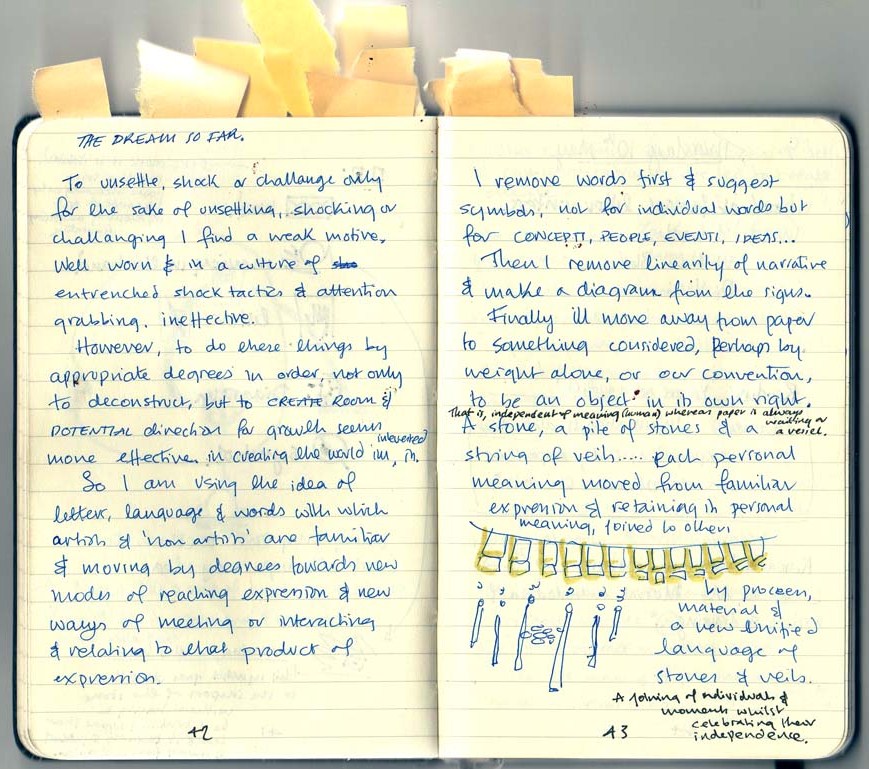 THE DREAM SO FAR.
To unsettle, shock or challange only
for the sake of unsettling, shocking or
challanging I find a weak motive.
Well worn & in a culture of
entrenched shock tactics & attention
grabbing. ineffective.
However, to do these things by
appropriate degrees in order, not only
to deconstruct, but to CREATE ROOM &
POTENTIAL direction for growth seems
more effective. in creating the world im interested in.
So I am using the idea of
letters, language & words with which
artists & 'non artists' are familiar
& moving by degrees towards new
modes of reaching expression & new
ways of meeting or interacting
& relating to that product of
expression.
42
I remove words first & suggest
symbols, not for individual words but
for CONCEPTS, PEOPLE, EVENTS, IDEAS...
Then I remove linearity of narrative
& make a diagram from the signs.
Finally ill move away from paper
to something considered, perhaps by
weight alone, or our convention,
to be an object in its own right.
That is, independent of meaning (human) whereas paper is always
waiting or
a vessel.
A stone, a pile of stones & a
string of veils..... Each personal
meaning moved from familiar
expression & retaining its personal
meaning, joined to others
by process,
material &
a new unified
language of
stones & veils.
A joining of individuals &
moments whilst
celebrating their
independence.
43